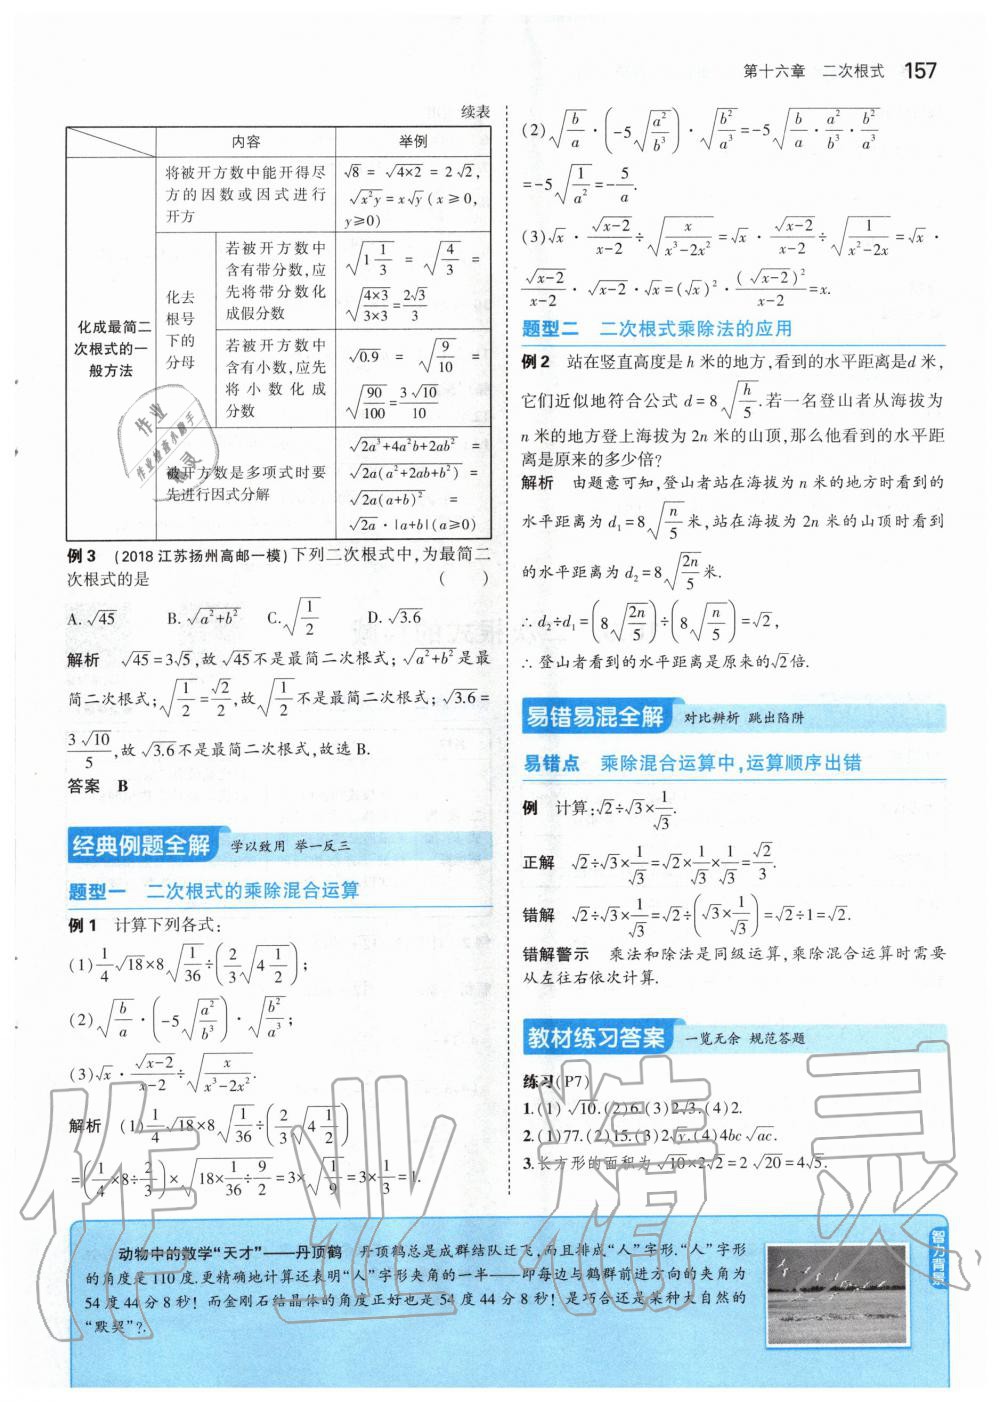 第十六章 二次根式 157
续表
内容 举例
化成最简二次根式的一般方法
将被开方数中能开得尽方的因数或因式进行开方
√8 = √(4×2) = 2√2,
√(x²y) = x√y (x≥0,
y≥0)
化去根号下的分母
若被开方数中含有带分数,应先将带分数化成假分数
√(1 1/3) = √(4/3) =
√((4×3)/(3×3)) = 2√3/3
若被开方数中含有小数,应先将小数化成分数
√0.9 = √(9/10) =
√(90/100) = 3√10/10
被开方数是多项式时要先进行因式分解
√(2a³+4a²b+2ab²) =
√(2a(a²+2ab+b²)) =
√(2a(a+b)²) =
√(2a)·|a+b|(a≥0)
例3 (2018江苏扬州高邮一模)下列二次根式中,为最简二
次根式的是 ( )
A. √45 B. √(a²+b²) C. √(1/2) D. √3.6
解析 √45=3√5,故√45不是最简二次根式;√(a²+b²)是最
简二次根式;√(1/2)=√2/2,故√(1/2)不是最简二次根式;√3.6=
3√10/5,故√3.6不是最简二次根式,故选B.
答案 B
经典例题全解 学以致用 举一反三
题型一 二次根式的乘除混合运算
例1 计算下列各式:
(1) 1/4 √18×8√(1/36)÷(2/3 √(4 1/2));
(2) √(b/a)·(-5√(a²/b³))·√(b²/a³);
(3)√x·√(x-2)/(x-2)÷√(x/(x³-2x²)).
解析 (1) 1/4 √18×8√(1/36)÷(2/3 √(4 1/2))
=(1/4×8÷2/3)×√(18×1/36÷9/2)=3×√(1/9)=3×1/3=1.
(2)√(b/a)·(-5√(a²/b³))·√(b²/a³)=-5√(b/a·a²/b³·b²/a³)
=-5√(1/a²)=-5/a.
(3)√x·√(x-2)/(x-2)÷√(x/(x³-2x²))=√x·√(x-2)/(x-2)÷√(1/(x²-2x))=√x·
√(x-2)/(x-2)·√(x-2)·√x=(√x)²·(√(x-2))²/(x-2)=x.
题型二 二次根式乘除法的应用
例2 站在竖直高度是h米的地方,看到的水平距离是d米,
它们近似地符合公式d=8√(h/5).若一名登山者从海拔为
n米的地方登上海拔为2n米的山顶,那么他看到的水平距
离是原来的多少倍?
解析 由题意可知,登山者站在海拔为n米的地方时看到的
水平距离为d₁=8√(n/5)米,站在海拔为2n米的山顶时看到
的水平距离为d₂=8√(2n/5)米.
∴d₂÷d₁=(8√(2n/5))÷(8√(n/5))=√2,
∴登山者看到的水平距离是原来的√2倍.
易错易混全解 对比辨析 跳出陷阱
易错点 乘除混合运算中,运算顺序出错
例 计算:√2÷√3×1/√3.
正解 √2÷√3×1/√3=√2×1/√3×1/√3=√2/3.
错解 √2÷√3×1/√3=√2÷(√3×1/√3)=√2÷1=√2.
错解警示 乘法和除法是同级运算,乘除混合运算时需要
从左往右依次计算.
教材练习答案 一览无余 规范答题
练习(P7)
1.(1)√10.(2)6.(3)2√3.(4)2.
2.(1)77.(2)15.(3)2√y.(4)4bc√ac.
3.长方形的面积为√10×2√2=2√20=4√5.
动物中的数学“天才”——丹顶鹤 丹顶鹤总是成群结队迁飞,而且排成“人”字形.“人”字形
的角度是110度.更精确地计算还表明“人”字形夹角的一半——即每边与鹤群前进方向的夹角为
54度44分8秒!而金刚石结晶体的角度正好也是54度44分8秒!是巧合还是某种大自然的
“默契”?.
智力背景
作业精灵
作业
作业检查小助手
精灵